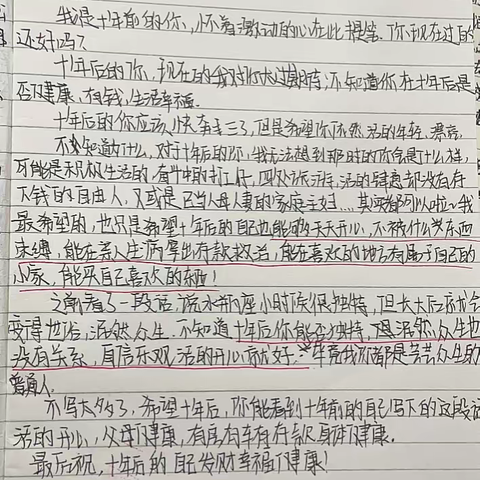 我是十年前的你,怀着激动的心在此提笔.你现在过的
还好吗?
十年后的你,现在的我对你太过期待,不知道你在十年后是
否健康,有钱,生活幸福.
十年后的你应该快奔三了,但是希望你依然活的年轻、漂亮,
不知道为什么,对于十年后的你,我无法想到那时的你会是什么样,
可能是积极生活的、奋斗中的打工仔,四处旅游,活的肆意却没有存
下钱的自由人,又或是已当人母人妻的家庭主妇....其实都可以啦~我
最希望的,也只是希望十年后的自己也能够天天开心,不被什么东西
束缚,能在亲人生病拿出存款救治,能在喜欢的地方有属于自己的
小家,能买自己喜欢的东西!
之前看了一段话,流水形容小时候很独特,但长大后就会
变得世俗,泯然众生.不知道十年后你能否独特,但泯然众生也
没有关系,自信乐观活的开心就好.毕竟我们都是芸芸众生的
普通人.
不写太多了,希望十年后,你能看到十年前的自己写下的这段话
活的开心,父母健康,有房有车有存款身体健康.
最后祝,十年后的自己发财幸福健康!